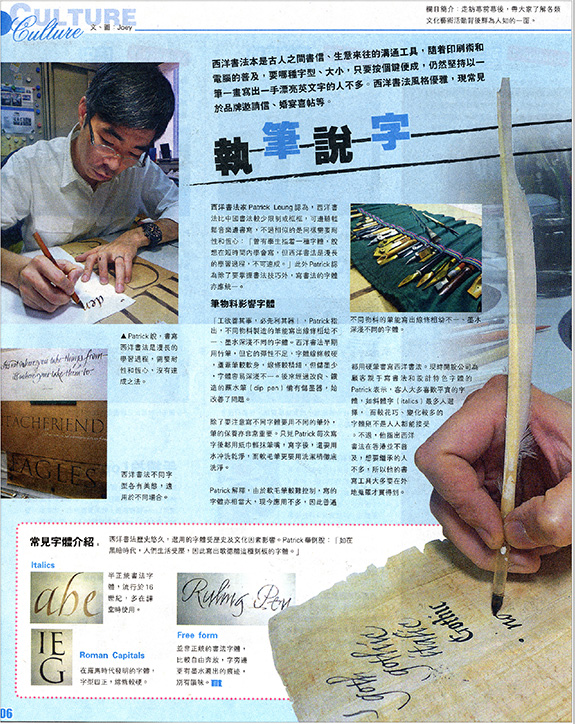 CULTURE
Culture
文、圖：Joey
欄目簡介：走訪專營幕後，帶大家了解各類
文化藝術活動背後鮮為人知的一面。
西洋書法本是古人之間書信、生意來往的溝通工具，隨着印刷術和
電腦的普及，要哪種字型、大小，只要按個鍵便成，仍然堅持以一
筆一畫寫出一手漂亮英文字的人不多。西洋書法風格優雅，現常見
於品牌邀請信、婚宴喜帖等。
執筆說字
西洋書法家Patrick Leung認為，西洋書
法比中國書法較少限制或框框，可邊聽輕
鬆音樂邊書寫，不過相似的是同樣需要耐
性和恆心：「曾有學生指着一種字體，說
想在短時間內學會寫，但西洋書法是漫長
的學習過程，不可速成。」此外Patrick認
為除了要掌握書法技巧外，寫書法的字體
亦應統一。
筆物料影響字體
「工欲善其事，必先利其器」，Patrick指
出，不同物料製造的筆能寫出線條粗幼不
一、墨水深淺不同的字體。西洋書法早期
用竹筆，但它的彈性不足，字體線條較硬
，儲墨少
，字體容易深淺不一。後來經過改良，鋼
造的蘸水筆（dip pen）備有儲墨器，始
改善了問題。
除了要注意寫不同字體要用不同的筆外，
筆的保養亦非常重要。只見Patrick每次寫
字後都用紙巾輕抹筆嘴，寫字後，還要用
水沖洗乾淨，而軟毛筆更要用洗潔精徹底
洗淨。
Patrick解釋，由於軟毛筆較難控制，寫的
字體亦相當大，現今應用不多，因此普遍
不同物料的筆能寫出線條粗幼不一、墨水
深淺不同的字體。
都用硬筆書寫西洋書法。現時開設公司為
顧客親手寫書法和設計特色字體的
Patrick表示，客人大多喜歡平實的字
體，如斜體字（italics）最多人選
擇，而較花巧、變化較多的
字體則不是人人都能接受
。不過，他指出西洋
書法在香港並不普
及，想要繼承的人
不多，所以他的書
寫工具大多要在外
地蒐羅才買得到。
▲Patrick說，書寫
西洋書法是漫長的
學習過程，需要耐
性和恆心，沒有速
成之法。
TACHFRIEND
EAGLES
西洋書法不同字
型各有美態，適
用於不同場合。
常見字體介紹：
西洋書法歷史悠久，選用的字體受歷史及文化因素影響。Patrick舉例說：「如在
黑暗時代，人們生活受壓，因此寫出歌德體這種刻板的字體。」
Italics
abe
半正統書法字
體，流行於16
世紀，多在課
堂時使用。
IEG
Roman Capitals
在羅馬時代發明的字體，
字型四正，線條較硬。
Ruling Pen
Free form
並非正統的書法字體，
比較自由奔放，字旁邊
更有墨水濺出的痕迹，
別有韻味。
Gothic
06